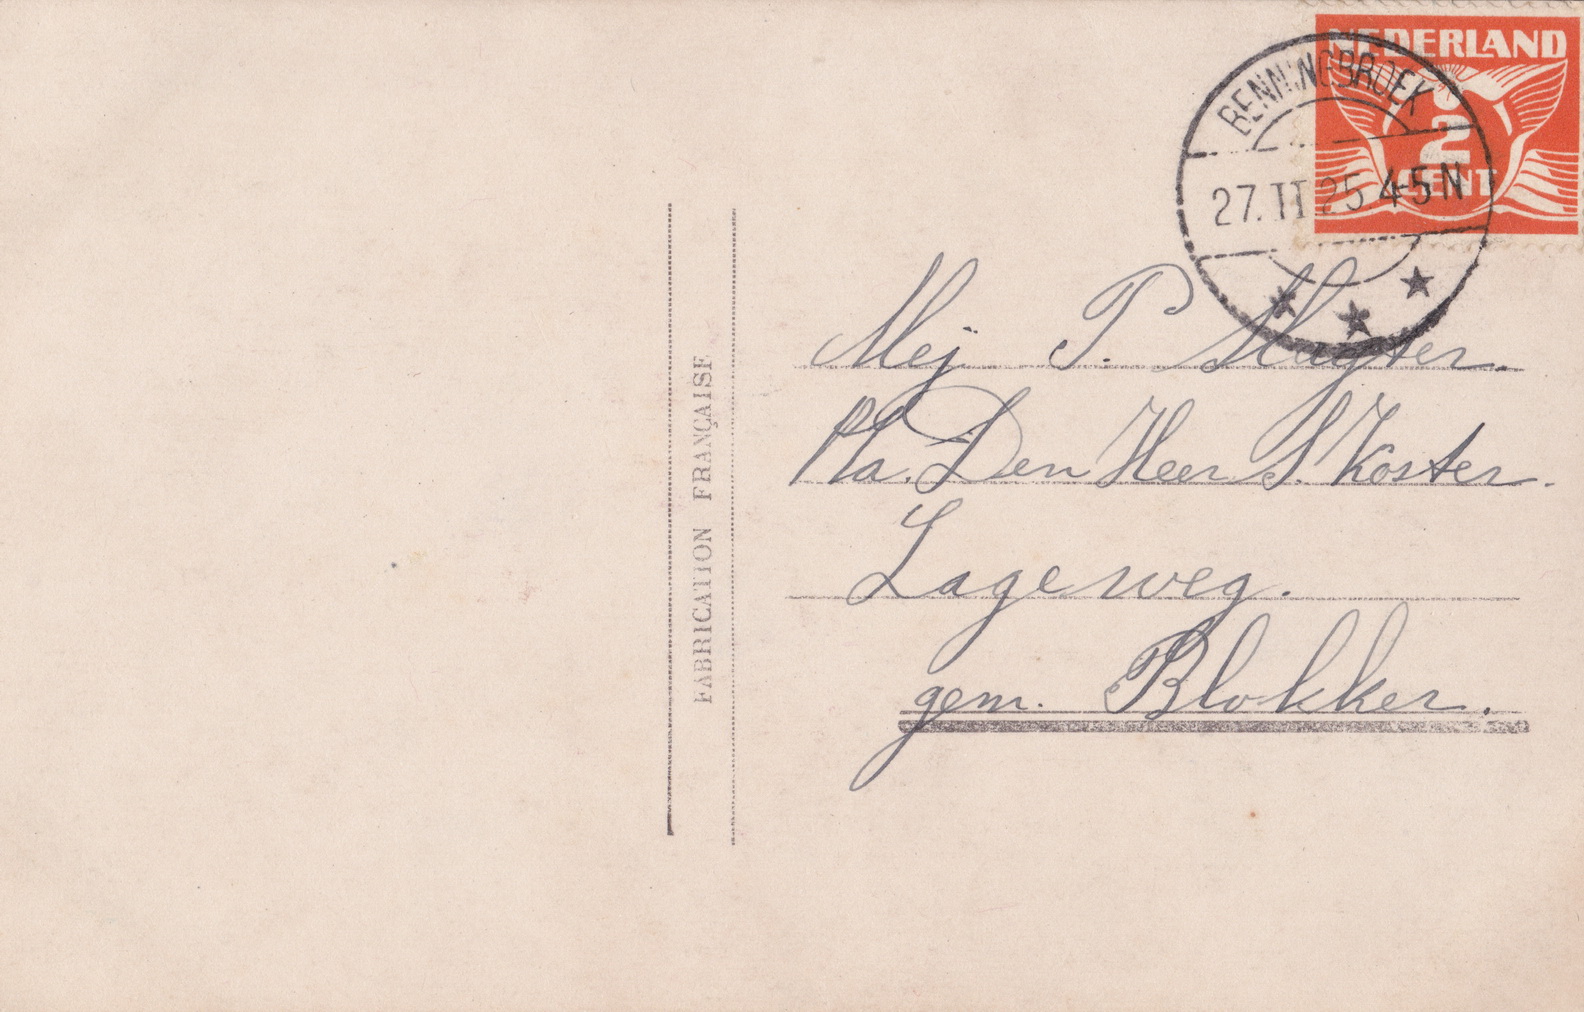 NEDERLAND
2
CENT
BENNINGBROEK
27.II 25 4-5 N
FABRICATION FRANÇAISE
Mej. T. Slagter.
P/a. Den Heer S. Koster.
Lageweg.
gem. Blokker.